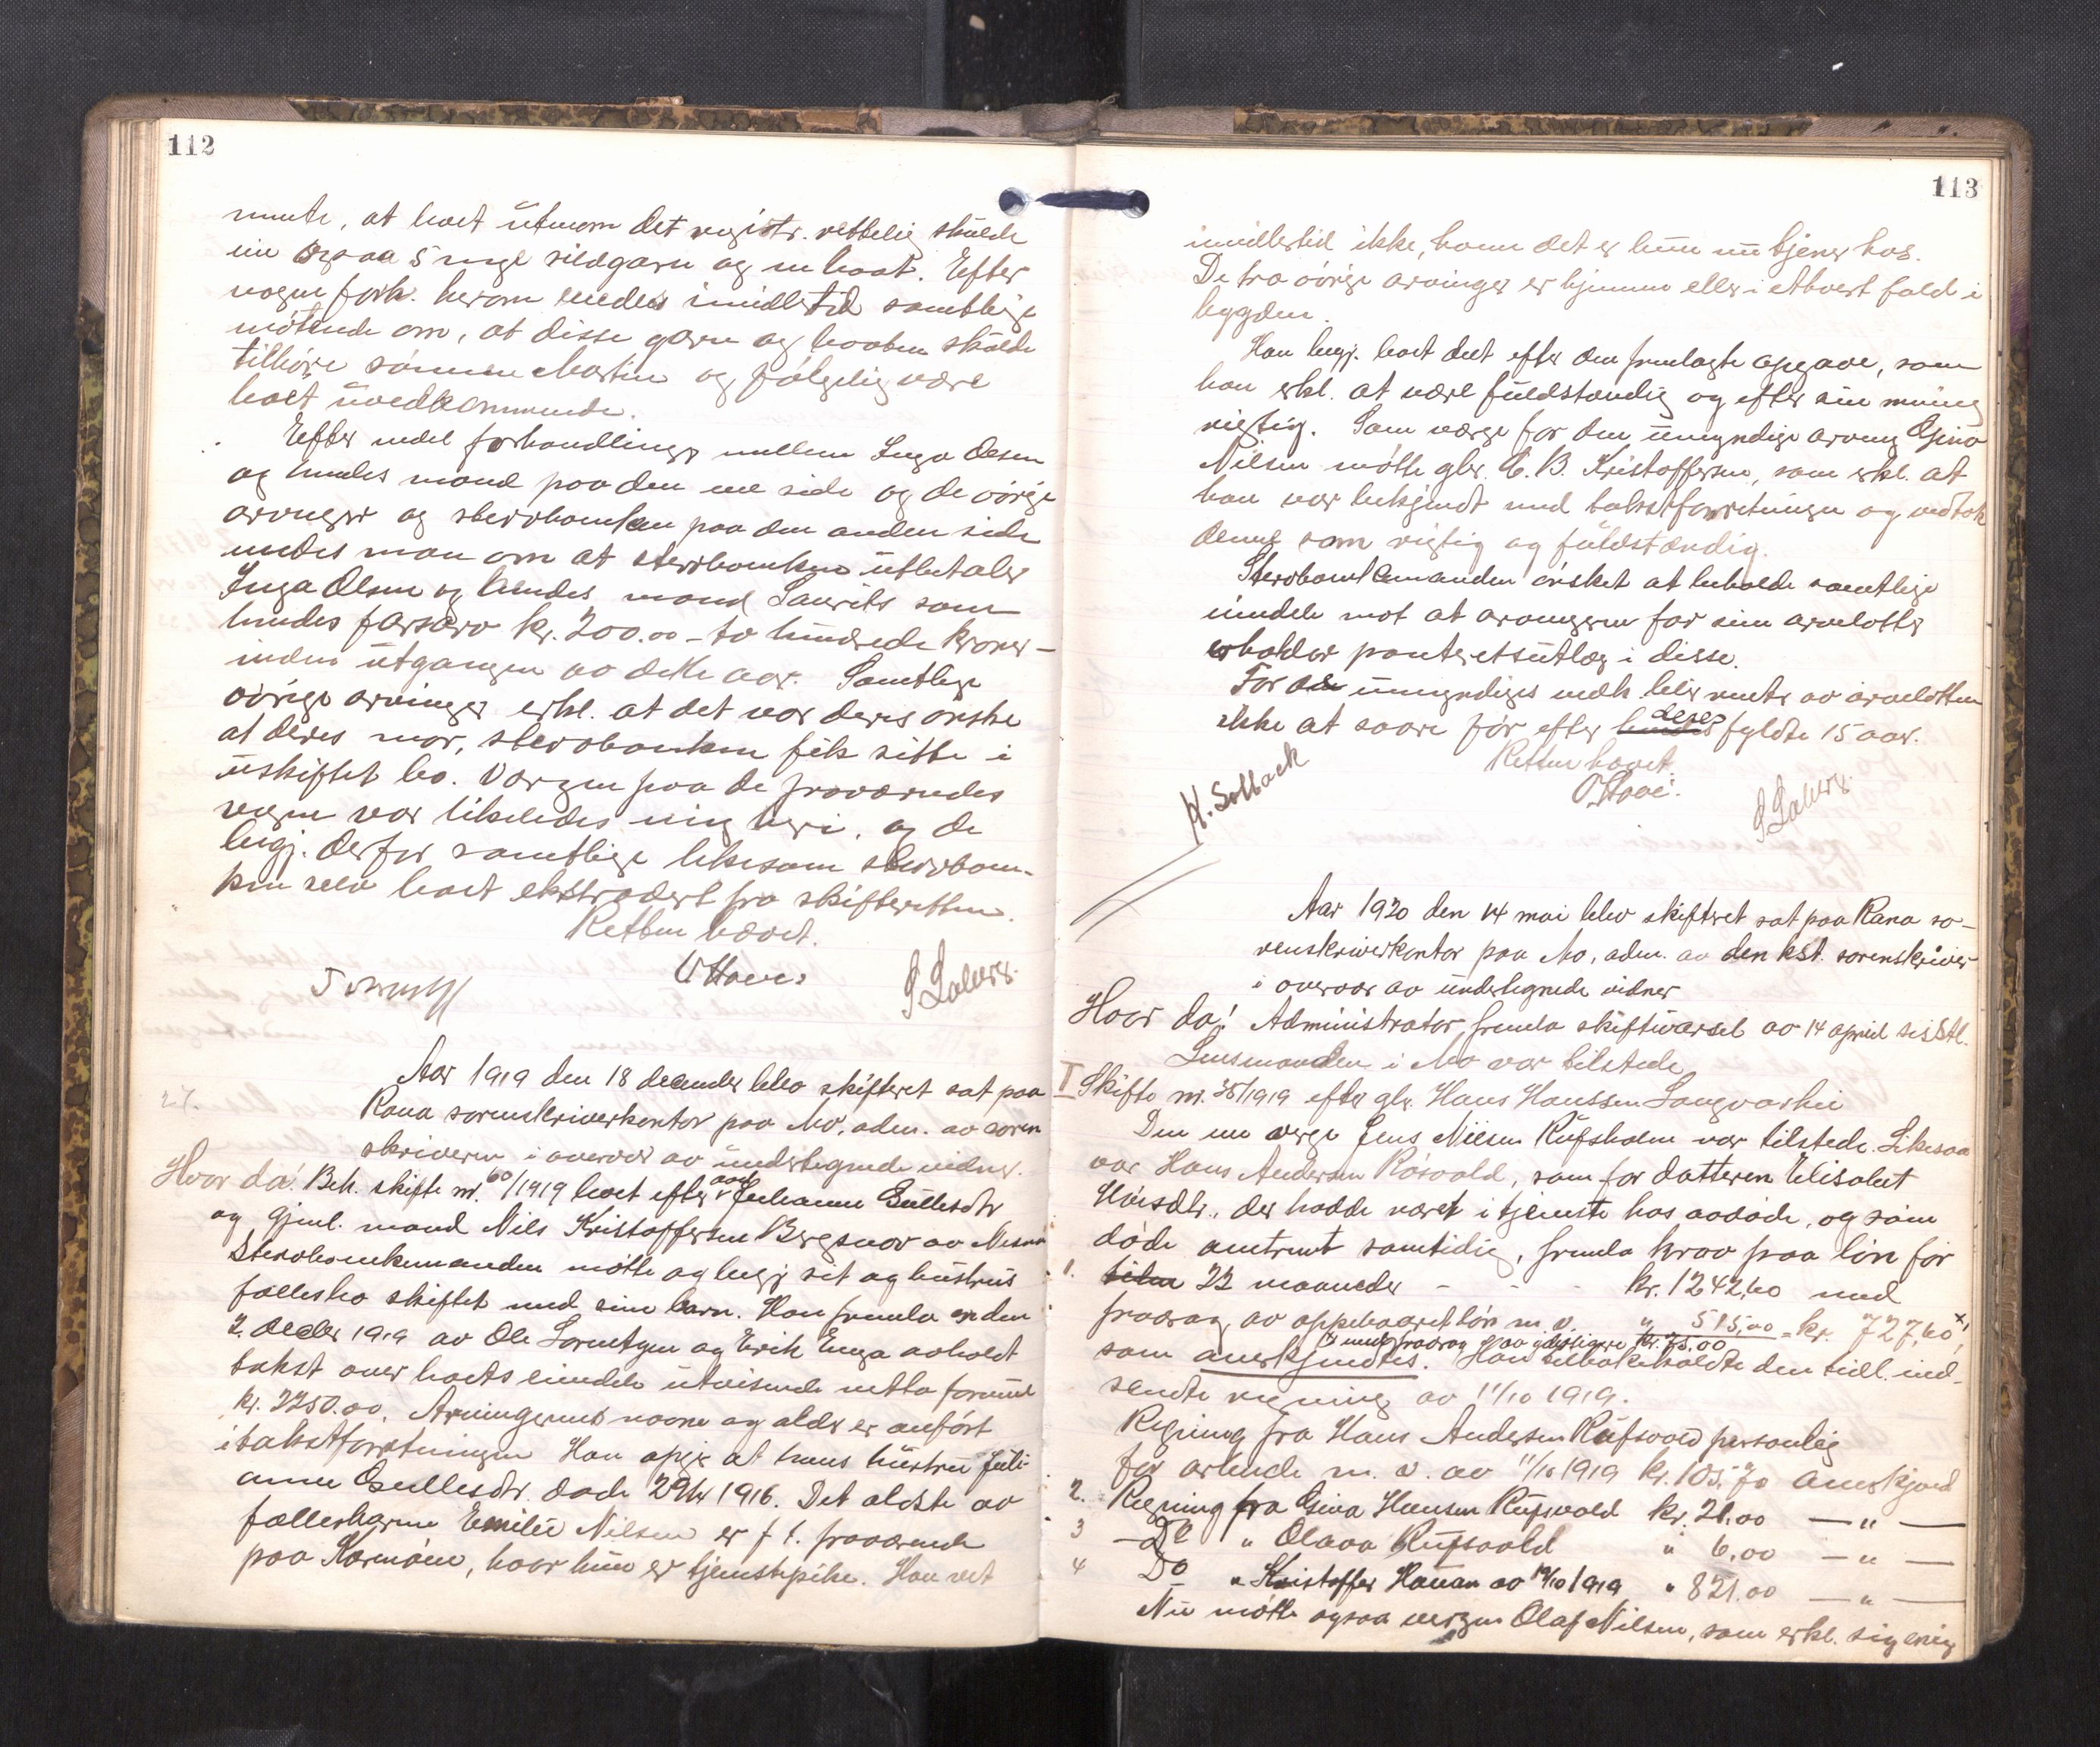 112
mente, at boet utenom det registr. rettelig skulde
eie ogsaa 5 nye sildgarn og en baat. Efter
nogen forh. herom enedes imidlertid samtlige
møtende om, at disse garn og baaten skulde
tilhøre sønnen Martin og følgelig være
boet uvedkommende.
Efter endel forhandlinger mellem Inga Olsen
og hendes mand paa den ene side og de øvrige
arvinger og sterboenken paa den anden side
enedes man om at sterboenken utbetaler
Inga Olsen og hendes mand Laurits som
hendes farsarv kr. 200.00 - to hundrede kroner -
inden utgangen av dette aar. Samtlige
øvrige arvinger erkl. at det var deres ønske
at deres mor, sterboenken fik sitte i
uskiftet bo. Vergen paa de fraværendes
vegne var likeledes enig heri, og de
begj. derfor samtlige likesom sterboen-
ken selv boet ekstradert fra skifteretten.
Retten hævet.
Aar 1919 den 18 december blev skifteret sat paa
27.
Rana sorenskriverkontor paa Mo, adm. av soren
skriveren i overvær av undertegnede vidner.
Hvor da! Beh. skifte nr. 60/1919 boet efter avd Julianne Eullesdtr
og gjenl. mand Nils Kristoffersen Bergsnov av Nesna
Sterboenkemanden møtte og begj. sit og hustrus
fællesbo skiftet med sine barn. Han fremla en den
2. decbr 1919 av Ole Lorentzen og Erik Enga avholdt
takst over boets eiendele utvisende netto formue
kr. 2250.00. Arvingernes navne og alder er anført
i takstforretningen Han opgir at hans hustru Juli-
anne Eullesdtr døde 29/4 1916. Det ældste av
fællesbarna Emilie Nilsen er f. t. fraværende
paa Karmøen, hvor hun er tjenestepike. Han vet
113
imidlertid ikke, hvem det er hun nu tjener hos.
De tre øvrige arvinger er hjemme eller i ethvert fald i
bygden.
Han begj. boet delt efter den fremlagte opgave, som
han erkl. at være fuldstændig og efter sin mening
rigtig. Som værge for den umyndige arving Gina
Nilsen møtte gbr. C. B. Kristoffersen, som erkl. at
han var bekjendt med takstforretningen og vedtok
denne som rigtig og fuldstændig.
Sterboenkemanden ønsket at beholde samtlige
eiendele mot at arvingerne for sine arvelotter
erholder panteretsutlæg i disse.
For de umyndiges vedk. blir rente av arvelotten
ikke at svare før efter hendes deres fyldte 15 aar.
Retten hævet.
H. Solback
Aar 1920 den 14 mai blev skifteret sat paa Rana so-
renskriverkontor paa Mo, adm. av den kst. sorenskriver
i overvær av undertegnede vidner
Hvor da! Administrator fremla skiftevarsel av 14 april sisstl.
Lensmanden i Mo var tilstede
I Skifte nr. 35/1919 efter gbr. Hans Hanssen Langvashei
Den ene verge Jens Nilsen Rufsholm var tilstede. Likesaa
var Hans Andersen Røsvold, som for datteren Elisabet
Hansdtr., der hadde været i tjeneste hos avdøde, og som
døde omtrent samtidig, fremla krav paa løn for
1. tiden 22 maaneder - - - kr. 1242,60 med
fradrag av oppebaaret løn m. v. " 515,00 = kr. 727,60 x)
x med fradrag av yderligere kr. 75.00
som anerkjendtes. Han tilbakekaldte den tidl. ind-
sendte regning av 11/10 1919.
Regning fra Hans Andersen Rufsvold personlig
for arbeide m. v. av 11/10 1919 kr. 105.70 anerkjend
2. Regning fra Gina Hansen Rufsvold kr. 21.00 — " —
3 Do " Olava Rufsvold " 6.00 — " —
4 Do " Kristoffer Hauan av 14/10 1919 " 821.00 — " —
Nu møtte ogsaa vergen Olaf Nilsen, som erkl. sig enig